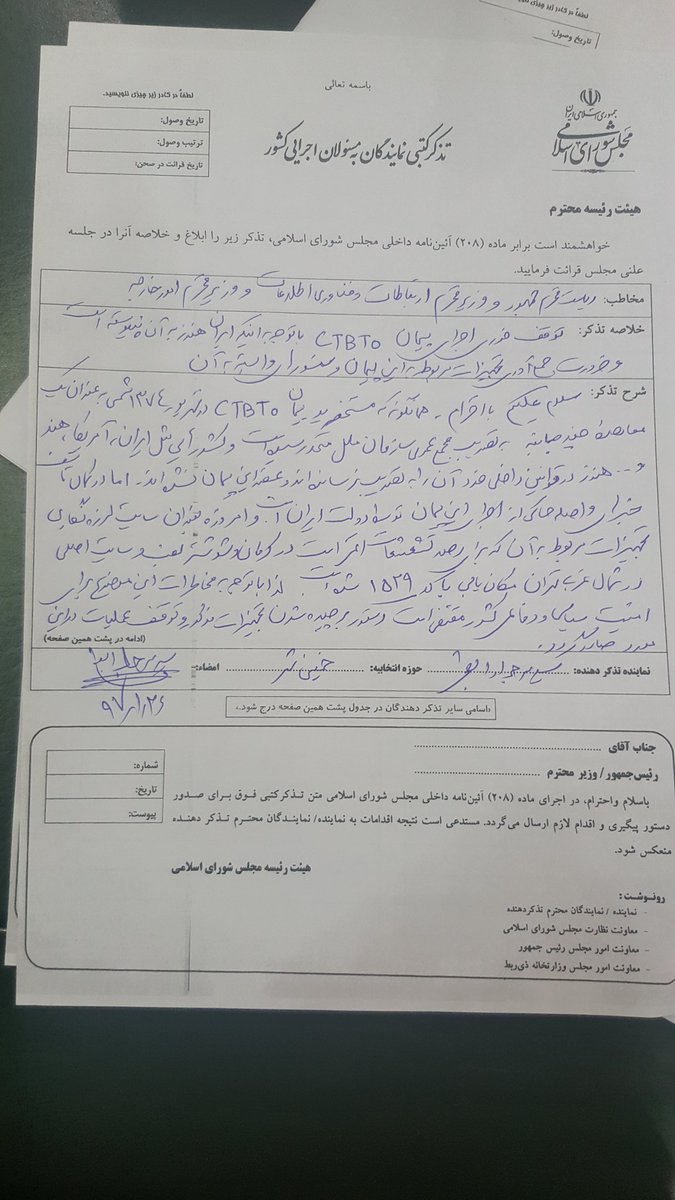 لطفاً در کادر زیر چیزی ننویسید.
تاریخ وصول:
باسمه تعالی
لطفاً در کادر زیر چیزی ننویسید.
جمهوری اسلامی ایران
مجلس شورای اسلامی
تذکر کتبی نمایندگان به مسئولان اجرایی کشور
تاریخ وصول:
ترتیب وصول:
تاریخ قرائت در صحن:
هیئت رئیسه محترم
خواهشمند است برابر ماده (۲۰۸) آئین‌نامه داخلی مجلس شورای اسلامی، تذکر زیر را ابلاغ و خلاصه آنرا در جلسه
علنی مجلس قرائت فرمایید.
مخاطب: ریاست محترم جمهور و وزیر محترم ارتباطات و فناوری اطلاعات و وزیر محترم امور خارجه
خلاصه تذکر: توقف فوری اجرای پیمان CTBTO با توجه به اینکه ایران هنوز به آن نپیوسته است
و ضرورت جمع آوری تجهیزات مربوط به این پیمان و سنسورهای وابسته به آن
شرح تذکر: سلام علیکم با احترام - همانگونه که مستحضرید پیمان CTBTO در شهریور ۱۳۷۴ شمسی به عنوان یک
معاهده چند جانبه به تصویب مجمع عمومی سازمان ملل متحد رسیده است و کشورهایی مثل ایران، آمریکا، هند
و ... هنوز در قوانین داخلی خود آن را به تصویب نرسانده اند و عضو این پیمان نشده اند. اما در کمال تأسف
خبرهای واصله حاکی از اجرای این پیمان توسط دولت ایران است و امروزه بعنوان سایت لرزه نگاری
تجهیزات مربوط به آن که برای رصد تشعشعات اتمی است در کرمان و شوشتر نصب و سایت اصلی
در شمال غرب تهران مکان یابی با کد ۱۵۲۹ شده است. لذا با توجه به مخاطرات این موضوع برای
امنیت سیاسی و دفاعی کشور مقتضی است دستور برچیده شدن تجهیزات مذکور و توقف عملیات در این
مورد صادر گردد.
(ادامه در پشت همین صفحه)
نماینده تذکر دهنده: حوزه انتخابیه: خمینی شهر امضاء:
۹۷/۱/۲۶
(اسامی سایر تذکر دهندگان در جدول پشت همین صفحه درج شود.)
جناب آقای
رئیس‌جمهور / وزیر محترم
شماره:
تاریخ:
پیوست:
باسلام واحترام، در اجرای ماده (۲۰۸) آئین‌نامه داخلی مجلس شورای اسلامی متن تذکرکتبی فوق برای صدور
دستور پیگیری و اقدام لازم ارسال می‌گردد. مستدعی است نتیجه اقدامات به نماینده/ نمایندگان محترم تذکر دهنده
منعکس شود.
هیئت رئیسه مجلس شورای اسلامی
رونوشت:
- نماینده / نمایندگان محترم تذکردهنده
- معاونت نظارت مجلس شورای اسلامی
- معاونت امور مجلس رئیس جمهور
- معاونت امور مجلس وزارتخانه ذی‌ربط